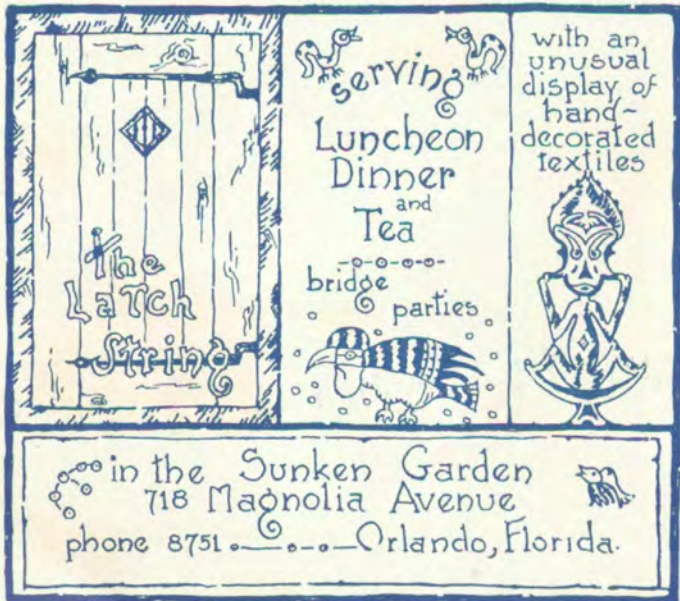 The
Latch
String
serving
Luncheon
Dinner
and
Tea
bridge
parties
with an
unusual
display of
hand-
decorated
textiles
in the Sunken Garden
718 Magnolia Avenue
phone 8751 Orlando, Florida.